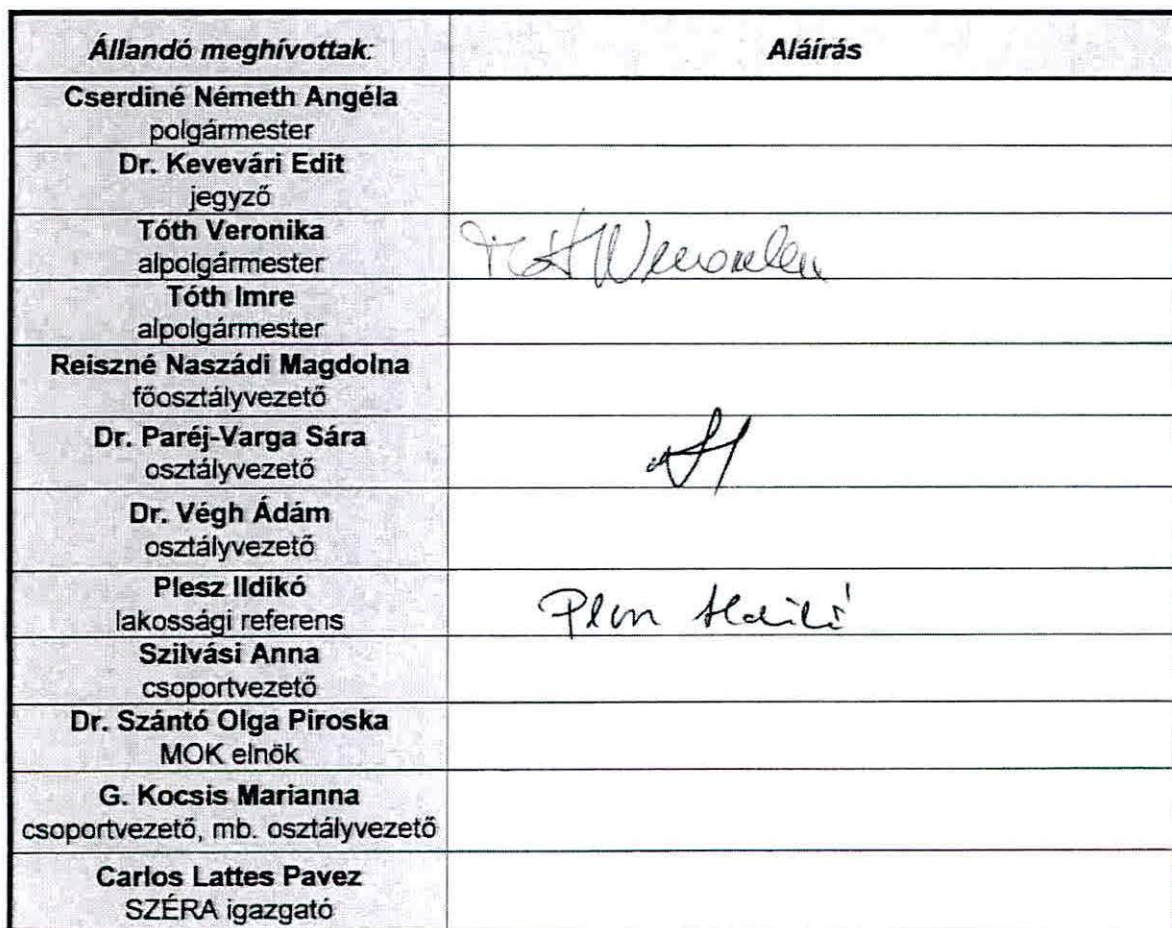 Állandó meghívottak:
Aláírás
Cserdiné Németh Angéla
polgármester
Dr. Kevevári Edit
jegyző
Tóth Veronika
alpolgármester
Tóth Imre
alpolgármester
Reiszné Naszádi Magdolna
főosztályvezető
Dr. Paréj-Varga Sára
osztályvezető
Dr. Végh Ádám
osztályvezető
Plesz Ildikó
lakossági referens
Szilvási Anna
csoportvezető
Dr. Szántó Olga Piroska
MOK elnök
G. Kocsis Marianna
csoportvezető, mb. osztályvezető
Carlos Lattes Pavez
SZÉRA igazgató